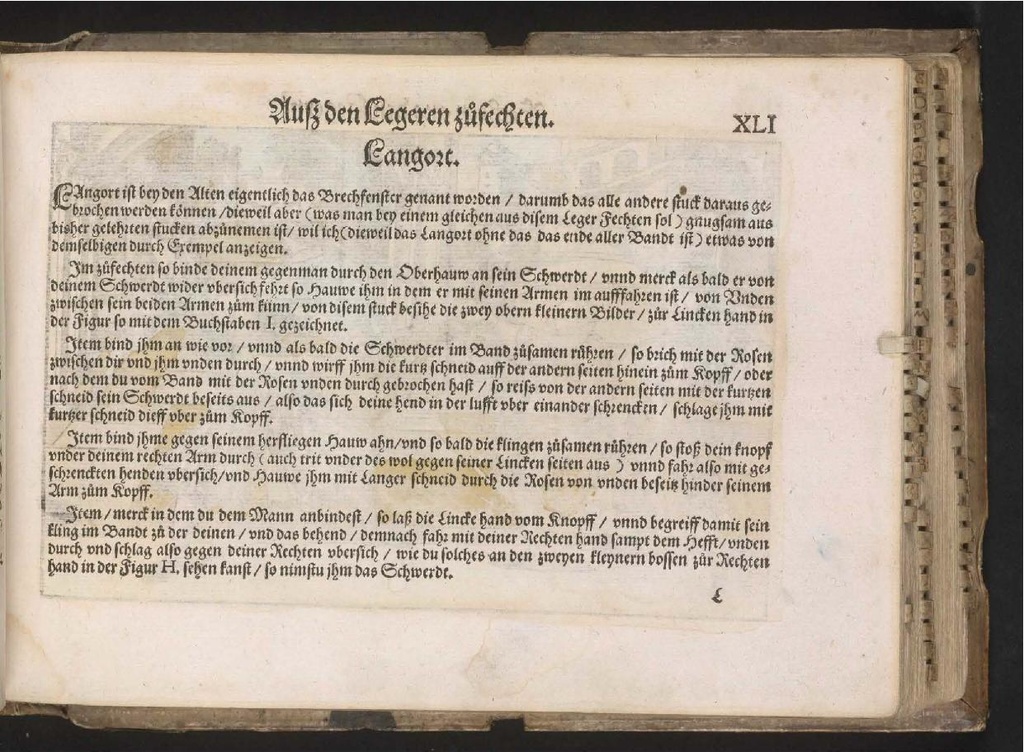 Auß den Legeren zůfechten.
XLI
Langort.
LAngort ist bey den Alten eigentlich das Brechfenster genant worden / darumb das alle andere stuck daraus ge-
brochen werden können / dieweil aber ( was man bey einem gleichen aus disem Leger Fechten sol ) gnugsam aus
bisher gelehrten stucken abzůnemen ist / wil ich ( dieweil das Langort ohne das das ende aller Bandt ist ) etwas von
demselbigen durch Exempel anzeigen.
Im zůfechten so binde deinem gegenman durch den Oberhauw an sein Schwerdt / vnnd merck als bald er von
deinem Schwerdt wider vbersich fehrt so Hauwe ihm in dem er mit seinen Armen im aufffahren ist / von Vnden
zwischen sein beiden Armen zům kiinn / von disem stuck besihe die zwey obern kleinern Bilder / zůr Lincken hand in
der Figur so mit dem Buchstaben I. gezeichnet.
Item bind jhm an wie vor / vnnd als bald die Schwerdter im Band zůsamen růhren / so brich mit der Rosen
zwischen dir vnd jhm vnden durch / vnnd wirff jhm die kurtz schneid auff der andern seiten hinein zům Kopff / oder
nach dem du vom Band mit der Rosen vnden durch gebrochen hast / so reiss von der andern seiten mit der kurtzen
schneid sein Schwerdt beseits aus / also das sich deine hend in der lufft vber einander schrencken / schlage jhm mit
kurtzer schneid dieff vber zům Kopff.
Item bind jhme gegen seinem herfliegen Hauw ahn / vnd so bald die klingen zůsamen růhren / so stoß dein knopf
vnder deinem rechten Arm durch ( auch trit vnder des wol gegen seiner Lincken seiten aus ) vnnd fahr also mit ge-
schrenckten henden vbersich / vnd Hauwe jhm mit Langer schneid durch die Rosen von vnden beseitz hinder seinem
Arm zům Kopff.
Item / merck in dem du dem Mann anbindest / so laß die Lincke hand vom Knopff / vnnd begreiff damit sein
kling im Bandt zů der deinen / vnd das behend / demnach fahr mit deiner Rechten hand sampt dem Hefft / vnden
durch vnd schlag also gegen deiner Rechten vbersich / wie du solches an den zweyen kleynern bossen zůr Rechten
hand in der Figur H. sehen kanst / so nimstu jhm das Schwerdt.
L